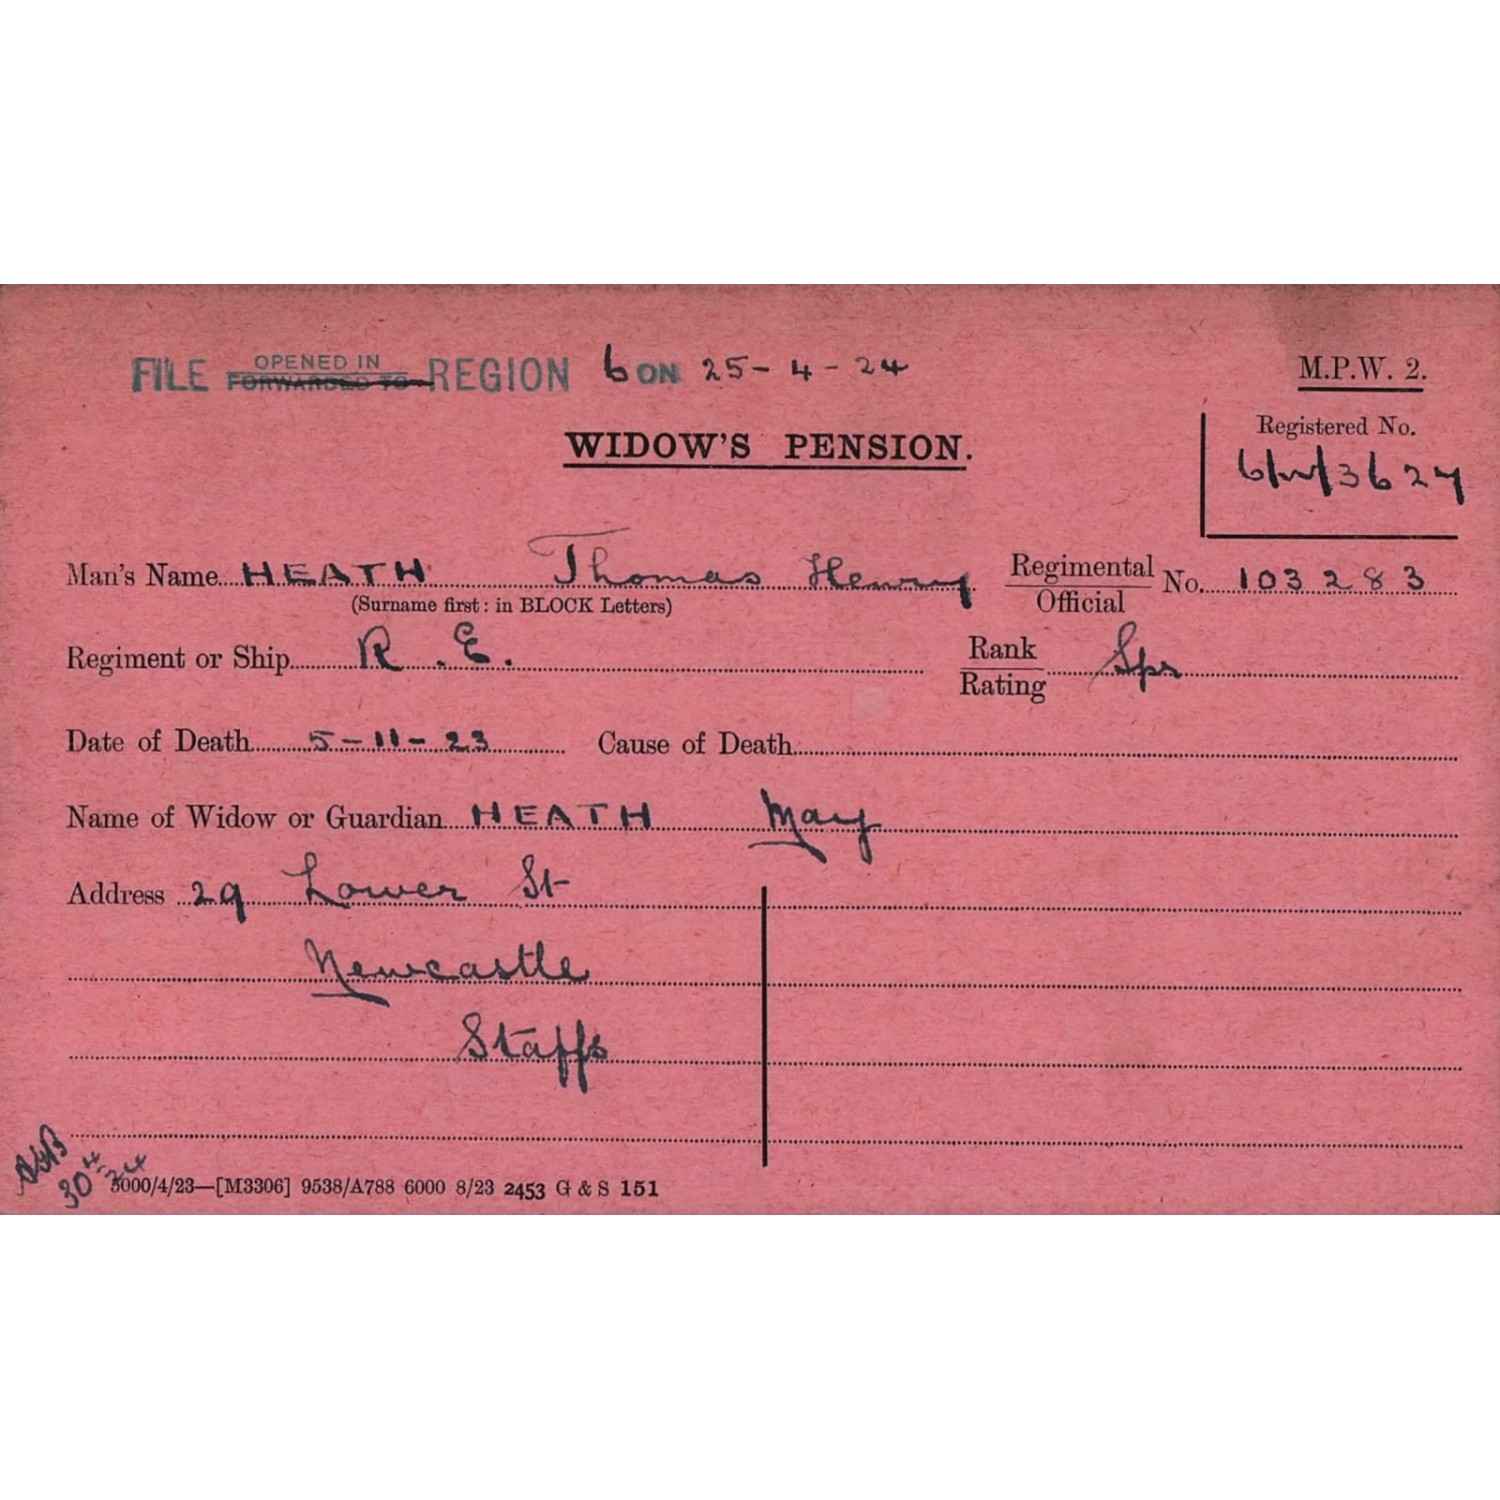 FILE OPENED IN REGION 6 ON 25-4-24
FORWARDED TO
M.P.W. 2.
WIDOW'S PENSION.
Registered No.
6/W/3627
Man's Name HEATH Thomas Henry Regimental No. 103283
Official
(Surname first: in BLOCK Letters)
Regiment or Ship R.E. Rank Spr
Rating
Date of Death 5-11-23 Cause of Death
Name of Widow or Guardian HEATH May
Address 29 Lower St
Newcastle
Staffs
30-4-24
5000/4/23—[M3306] 9538/A788 6000 8/23 2453 G & S 151